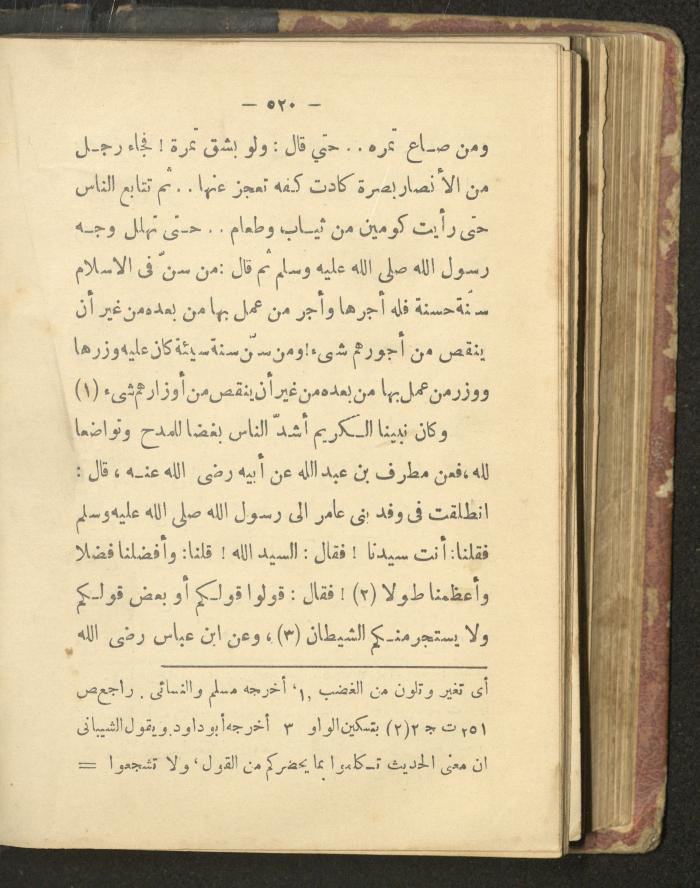 — ٥٢٠ —
ومن صاع تمره . . حتي قال : ولو بشق تمرة ! فجاء رجل
من الأنصار بصرة كادت كفه تعجز عنها . . ثم تتابع الناس
حتى رأيت كومين من ثياب وطعام . . حتى تهلل وجه
رسول الله صلى الله عليه وسلم ثم قال : من سنّ فى الاسلام
سنّة حسنة فله أجرها وأجر من عمل بها من بعده من غير أن
ينقص من أجورهم شىء ! ومن سنّ سنة سيئة كان عليه وزرها
ووزر من عمل بها من بعده من غير أن ينقص من أوزارهم شىء (١)
وكان نبينا الكريم أشدّ الناس بغضا للمدح وتواضعا
لله ، فعن مطرف بن عبد الله عن أبيه رضى الله عنه ، قال :
انطلقت فى وفد بنى عامر الى رسول الله صلى الله عليه وسلم
فقلنا : أنت سيدنا ! فقال : السيد الله ! قلنا : وأفضلنا فضلا
وأعظمنا طولا (٢) ! فقال : قولوا قولكم أو بعض قولكم
ولا يستجرمنكم الشيطان (٣) ، وعن ابن عباس رضى الله
أى تغير وتلون من الغضب ,١، أخرجه مسلم والنسائى . راجع ص
٢٥١ ت ج ٢ (٢) بتسكين الواو ٣ أخرجه أبو داود ويقول الشيبانى
ان معنى الحديث تكلموا بما يحضركم من القول ، ولا تشجعوا =